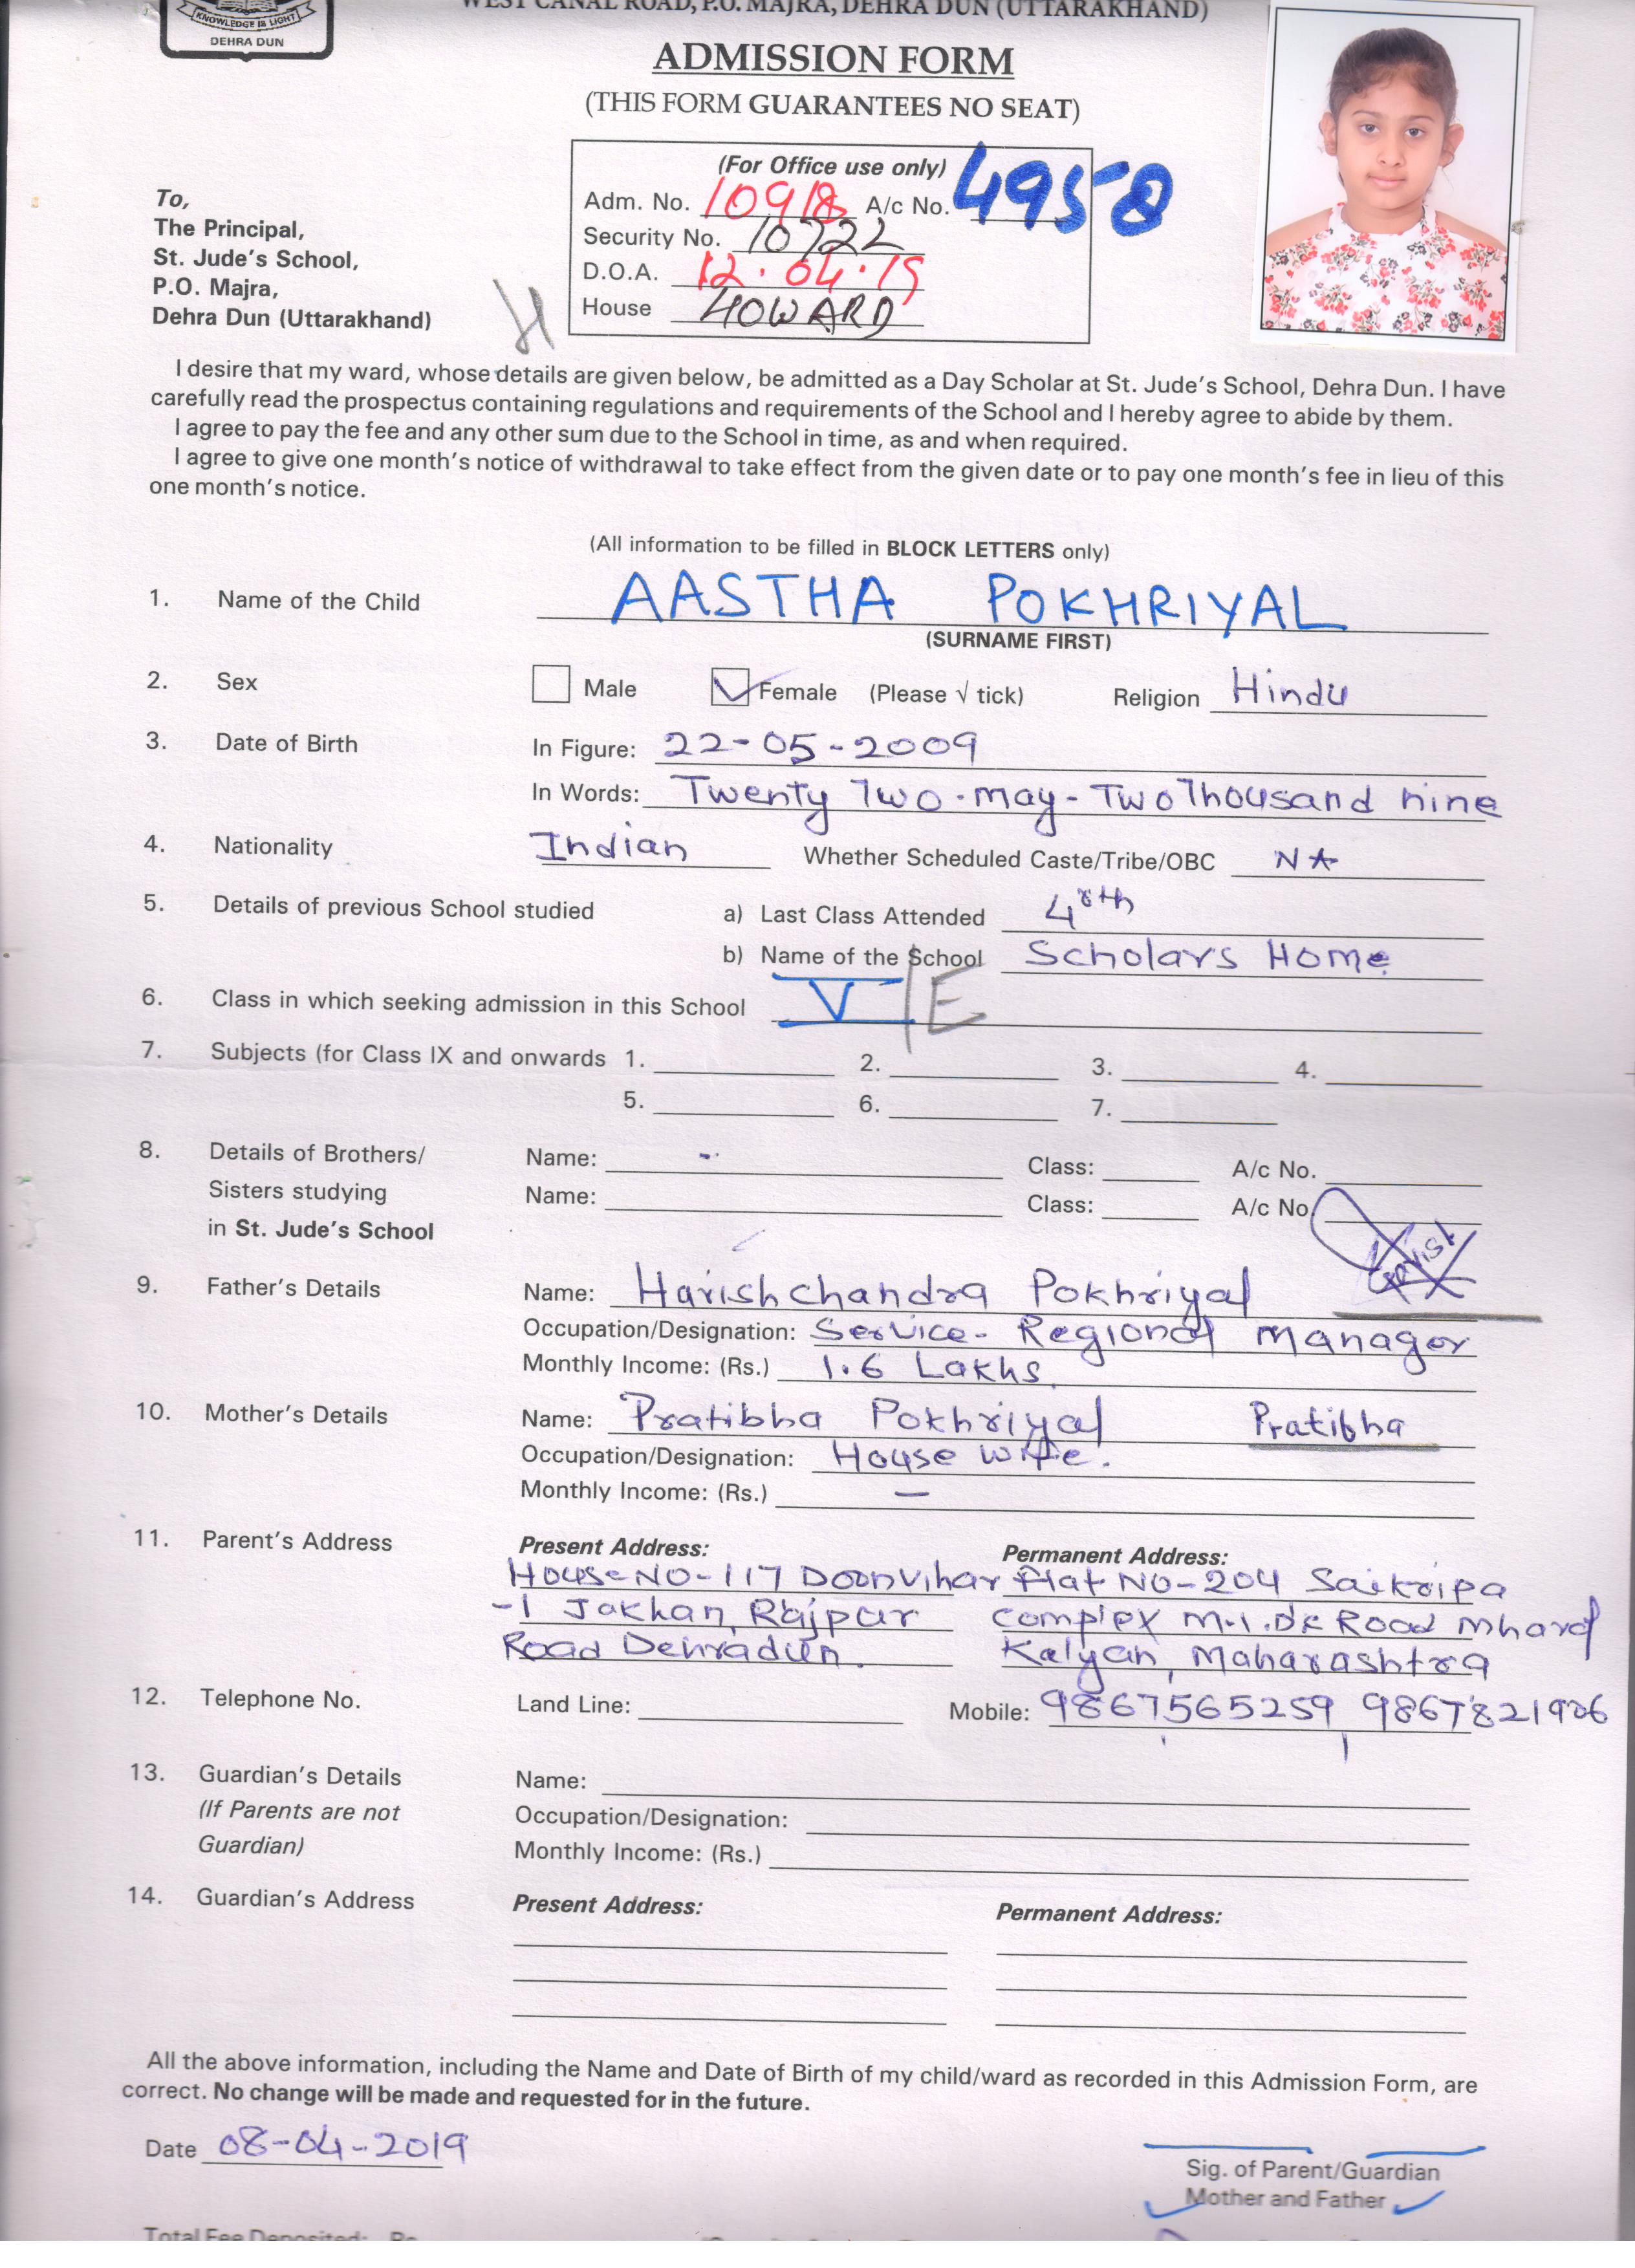 KNOWLEDGE IS LIGHT
DEHRA DUN
WEST CANAL ROAD, P.O. MAJRA, DEHRA DUN (UTTARAKHAND)
ADMISSION FORM
(THIS FORM GUARANTEES NO SEAT)
(For Office use only)
Adm. No. 10918 A/c No. 4958
Security No. 10722
D.O.A. 12.04.19
House HOWARD
H
To,
The Principal,
St. Jude's School,
P.O. Majra,
Dehra Dun (Uttarakhand)
I desire that my ward, whose details are given below, be admitted as a Day Scholar at St. Jude's School, Dehra Dun. I have
carefully read the prospectus containing regulations and requirements of the School and I hereby agree to abide by them.
I agree to pay the fee and any other sum due to the School in time, as and when required.
I agree to give one month's notice of withdrawal to take effect from the given date or to pay one month's fee in lieu of this
one month's notice.
(All information to be filled in BLOCK LETTERS only)
1. Name of the Child AASTHA POKHRIYAL
(SURNAME FIRST)
2. Sex Male Female (Please √ tick) Religion Hindu
3. Date of Birth In Figure: 22-05-2009
In Words: Twenty Two-may-Two Thousand nine
4. Nationality Indian Whether Scheduled Caste/Tribe/OBC NA
5. Details of previous School studied a) Last Class Attended 4rth
b) Name of the School Scholars Home
6. Class in which seeking admission in this School V/E
7. Subjects (for Class IX and onwards 1. 2. 3. 4.
5. 6. 7.
8. Details of Brothers/ Name: - Class: A/c No.
Sisters studying Name: Class: A/c No.
in St. Jude's School
9. Father's Details Name: Harishchandra Pokhriyal
Occupation/Designation: Service- Regional Manager
Monthly Income: (Rs.) 1.6 Lakhs
10. Mother's Details Name: Pratibha Pokhriyal Pratibha
Occupation/Designation: House wife.
Monthly Income: (Rs.) —
11. Parent's Address Present Address: Permanent Address:
House NO-117 Doonvihar Flat NO-204 Saikripa
-1 Jakhan, Rajpur complex M.1.DC Road Mharal
Road Dehradun. Kalyan, Maharashtra
12. Telephone No. Land Line: Mobile: 9867565259 9867821906
13. Guardian's Details Name:
(If Parents are not Occupation/Designation:
Guardian) Monthly Income: (Rs.)
14. Guardian's Address Present Address: Permanent Address:
All the above information, including the Name and Date of Birth of my child/ward as recorded in this Admission Form, are
correct. No change will be made and requested for in the future.
Date 08-04-2019
Sig. of Parent/Guardian
Mother and Father
Total Fee Deposited: Rs.